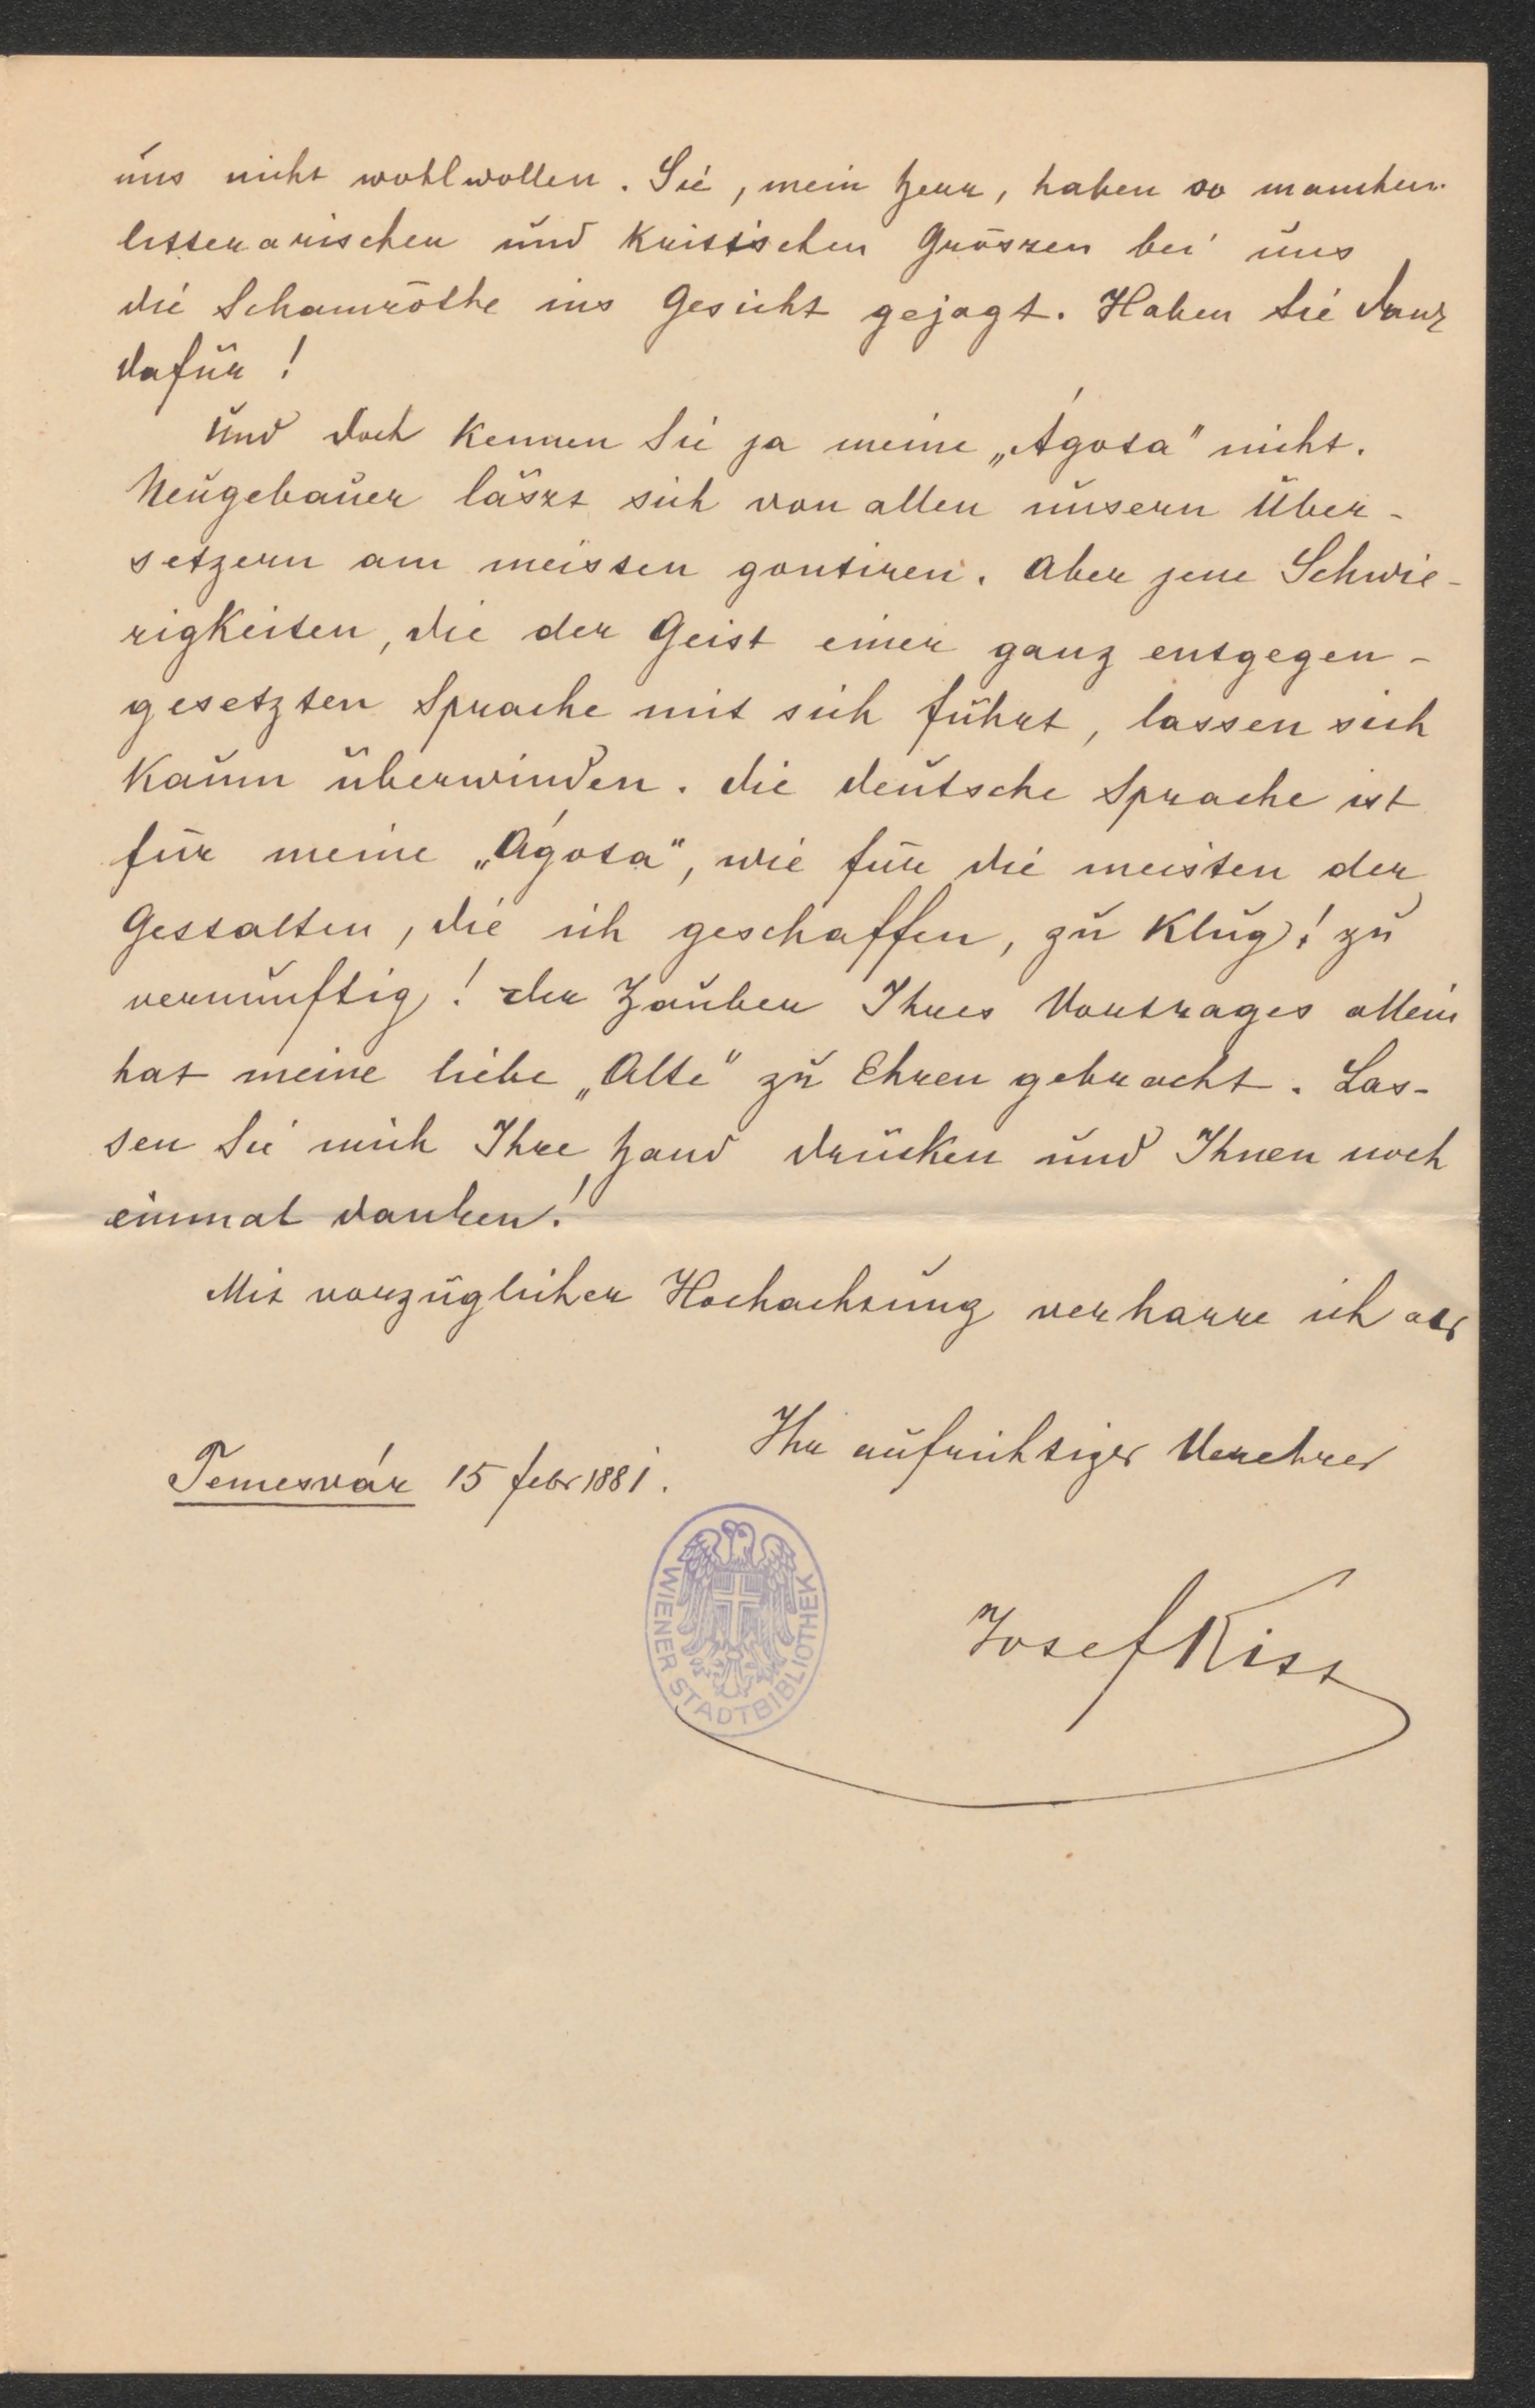 uns nicht wohlwollen. Sie, mein Herr, haben so manchen
litterarischen und kritischen Grössen bei uns
die Schamröthe ins Gesicht gejagt. Haben Sie Dank
dafür!
Und doch kennen Sie ja meine „Ágota" nicht.
Neugebauer lässt sich von allen unsern Über-
setzern am meisten goutiren. Aber jene Schwie-
rigkeiten, die der Geist einer ganz entgegen-
gesetzten Sprache mit sich führt, lassen sich
kaum überwinden. Die deutsche Sprache ist
für meine „Ágota", wie für die meisten der
Gestalten, die ich geschaffen, zu klug! zu
vernünftig! Der Zauber Ihres Vortrages allein
hat meine liebe „Alte" zu Ehren gebracht. Las-
sen Sie mich Ihre Hand drücken und Ihnen noch
einmal danken!
Mit vorzüglicher Hochachtung verharre ich als
Ihr aufrichtiger Verehrer
Temesvár 15 febr 1881.
Josef Kiss
WIENER STADTBIBLIOTHEK